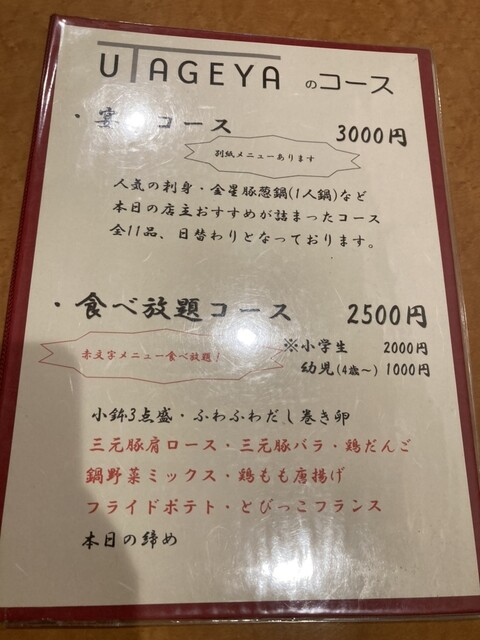 UTAGEYA のコース
・宴 コース 3000円
別紙メニューあります
人気の刺身・金星豚葱鍋(1人鍋)など
本日の店主おすすめが詰まったコース
全11品、日替わりとなっております。
・食べ放題コース 2500円
※小学生 2000円
幼児(4歳~) 1000円
赤文字メニュー食べ放題!
小鉢3点盛・ふわふわだし巻き卵
三元豚肩ロース・三元豚バラ・鶏だんご
鍋野菜ミックス・鶏もも唐揚げ
フライドポテト・とびっこフランス
本日の締め